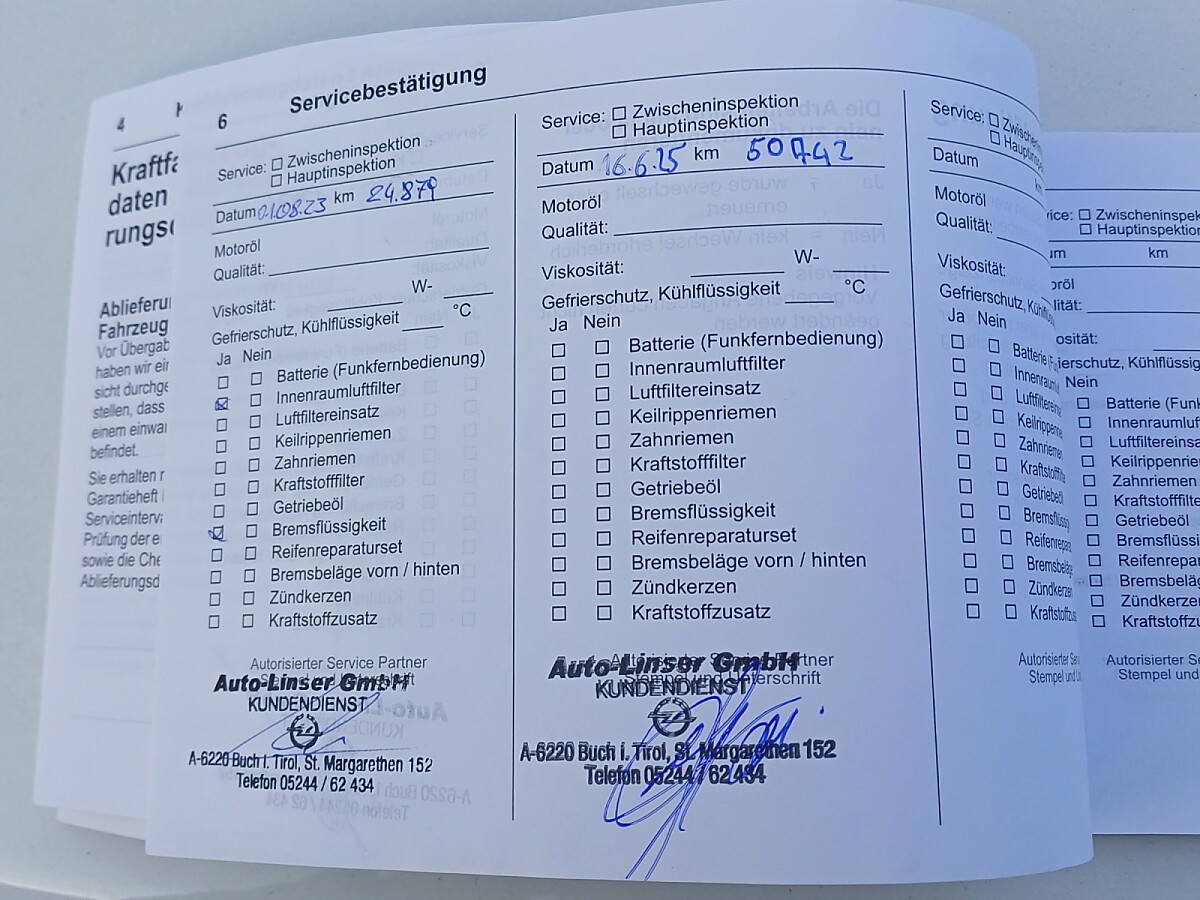 4
Kraftfa
daten
rungs
Ablieferu
Fahrzeug
Vor Übergab
haben wir ei
sicht durchge
stellen, dass
einem einwa
befindet.
Sie erhalten
Garantieheft
Serviceinterv
Prüfung der e
sowie die Che
Ablieferungsd
6 Servicebestätigung
Service: ☐ Zwischeninspektion
☐ Hauptinspektion
Datum 01.08.23 km 24.879
Motoröl
Qualität:
Viskosität: W-
Gefrierschutz, Kühlflüssigkeit °C
Ja Nein
☐ ☐ Batterie (Funkfernbedienung)
☒ ☐ Innenraumluftfilter
☐ ☐ Luftfiltereinsatz
☐ ☐ Keilrippenriemen
☐ ☐ Zahnriemen
☐ ☐ Kraftstofffilter
☐ ☐ Getriebeöl
☑ ☐ Bremsflüssigkeit
☐ ☐ Reifenreparaturset
☐ ☐ Bremsbeläge vorn / hinten
☐ ☐ Zündkerzen
☐ ☐ Kraftstoffzusatz
Autorisierter Service Partner
Auto-Linser GmbH
KUNDENDIENST
A-6220 Buch i. Tirol, St. Margarethen 152
Telefon 05244 / 62 434
Service: ☐ Zwischeninspektion
☐ Hauptinspektion
Datum 16.6.25 km 50742
Motoröl
Qualität:
Viskosität: W-
Gefrierschutz, Kühlflüssigkeit °C
Ja Nein
☐ ☐ Batterie (Funkfernbedienung)
☐ ☐ Innenraumluftfilter
☐ ☐ Luftfiltereinsatz
☐ ☐ Keilrippenriemen
☐ ☐ Zahnriemen
☐ ☐ Kraftstofffilter
☐ ☐ Getriebeöl
☐ ☐ Bremsflüssigkeit
☐ ☐ Reifenreparaturset
☐ ☐ Bremsbeläge vorn / hinten
☐ ☐ Zündkerzen
☐ ☐ Kraftstoffzusatz
Autorisierter Service Partner
Stempel und Unterschrift
Auto-Linser GmbH
KUNDENDIENST
A-6220 Buch i. Tirol, St. Margarethen 152
Telefon 05244 / 62 434
Service: ☐ Zwischenin
☐ Hauptinspe
Datum
Motoröl
Qualität:
Viskosität:
Gefrierschutz, Kühlflüs
Ja Nein
☐ ☐ Batterie (F
☐ ☐ Innenraum
☐ ☐ Luftfiltereins
☐ ☐ Keilrippenrie
☐ ☐ Zahnriemen
☐ ☐ Kraftstofffilte
☐ ☐ Getriebeöl
☐ ☐ Bremsflüssig
☐ ☐ Reifenrepara
☐ ☐ Bremsbeläge
☐ ☐ Zündkerzen
☐ ☐ Kraftstoffzus
Autorisierter Ser
Stempel und U
vice: ☐ Zwischeninspek
☐ Hauptinspektion
um km
oröl
lität:
kosität:
rierschutz, Kühlflüssig
Nein
☐ Batterie (Funk
☐ Innenraumluf
☐ Luftfiltereinsa
☐ Keilrippenrie
☐ Zahnriemen
☐ Kraftstofffilte
☐ Getriebeöl
☐ Bremsflüssi
☐ Reifenrepar
☐ Bremsbeläg
☐ Zündkerzen
☐ Kraftstoffzu
Autorisierter Se
Stempel und